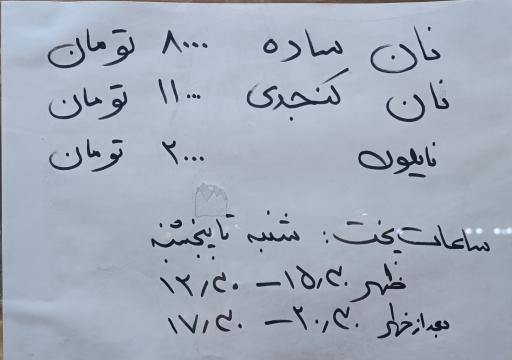 نان ساده ۸۰۰۰ تومان
نان کنجدی ۱۱۰۰۰ تومان
نایلون ۲۰۰۰ تومان
ساعات پخت: شنبه تا پنجشنبه
ظهر ۱۵٫۳۰ – ۱۲٫۳۰
بعد از ظهر ۲۰٫۳۰ – ۱۷٫۳۰